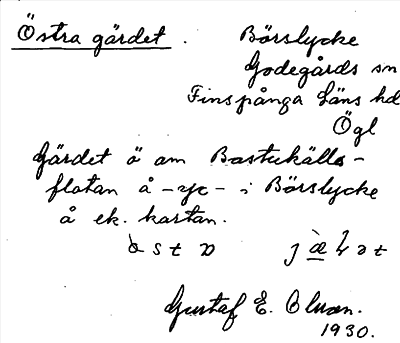 Östra gärdet. Börslycke
Godegårds sn
Finspånga läns hd
Ögl
Gärdet ö om Bastukälls-
flatan å -yc- i Börslycke
å ek. kartan.
Gustaf E.
1930.